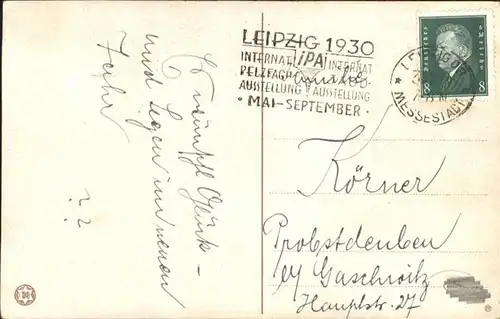 LEIPZIG 1930
INTERNAT iPA INTERNAT
PELZFACH
AUSSTELLUNG AUSSTELLUNG
• MAI-SEPTEMBER •
Deutsches Reich
8 8
MESSESTADT
Es wünscht Glück-
und Segen im neuen
Jahr
??
Körner
Probstdeuben
by Gaschwitz
Hauptstr. 27